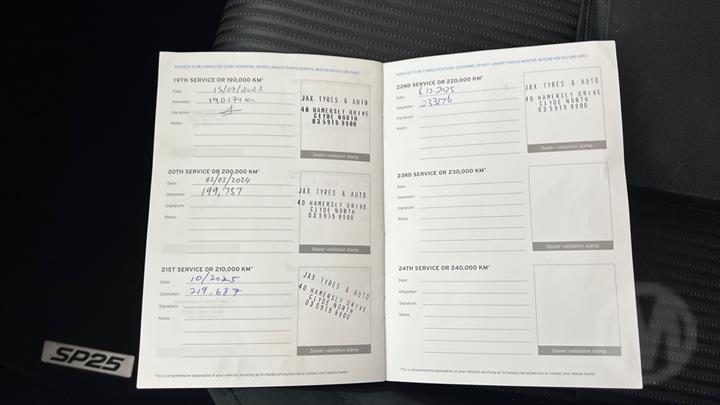 SERVICES TO BE COMPLETED EVERY 10,000KMS, OR NOT LONGER THAN 12 MONTHS, WHICHEVER OCCURS FIRST.
19TH SERVICE OR 190,000 KM*
Date: 15/07/2023
Odometer: 190174 Km
Signature:
Notes:
JAX TYRES & AUTO
40 HAMERSLY DRIVE
CLYDE NORTH
03 5915 9900
Dealer validation stamp
20TH SERVICE OR 200,000 KM*
Date: 02/03/2024
Odometer: 199,757
Signature:
Notes:
JAX TYRES & AUTO
40 HAMERSLY DRIVE
CLYDE NORTH
03 5915 9900
Dealer validation stamp
21ST SERVICE OR 210,000 KM*
Date: 10/2025
Odometer: 219,687
Signature:
Notes:
JAX TYRES & AUTO
40 HAMERSLY DRIVE
CLYDE NORTH
03 5915 9900
Dealer validation stamp
*For a comprehensive explanation of your vehicle's servicing go to mazda.com.au/service or contact your Mazda Dealer.
SERVICES TO BE COMPLETED EVERY 10,000KMS, OR NOT LONGER THAN 12 MONTHS, WHICHEVER OCCURS FIRST.
22ND SERVICE OR 220,000 KM*
Date:
Odometer: 233176
Signature:
Notes:
JAX TYRES & AUTO
40 HAMERSLY DRIVE
CLYDE NORTH
03 5915 9900
Dealer validation stamp
23RD SERVICE OR 230,000 KM*
Date:
Odometer:
Signature:
Notes:
Dealer validation stamp
24TH SERVICE OR 240,000 KM*
Date:
Odometer:
Signature:
Notes:
Dealer validation stamp
*For a comprehensive explanation of your vehicle's servicing go to mazda.com.au/service or contact your Mazda Dealer.
SP25